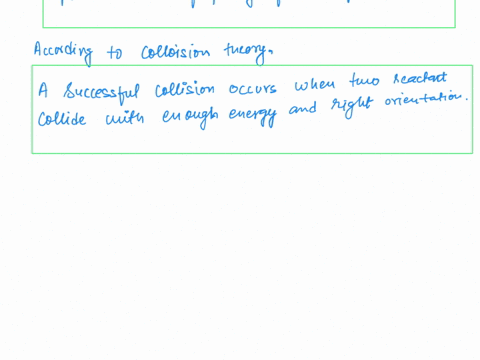 According to colloision theory,
A successful collision occurs when two reactant
collide with enough energy and right orientation.